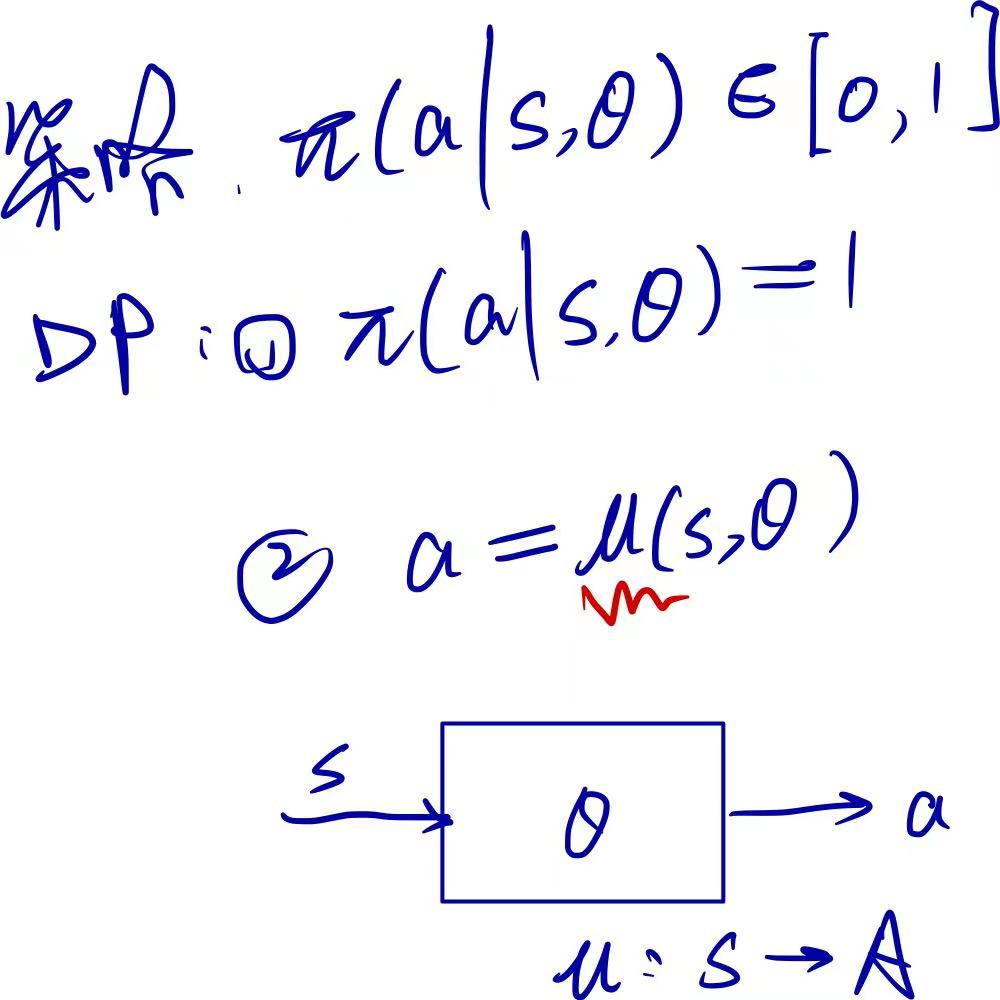 π(a|s,θ) ∈ [0,1]
DP: ① π(a|s,θ) = 1
② a = μ(s,θ)
s
θ
a
μ: s → A